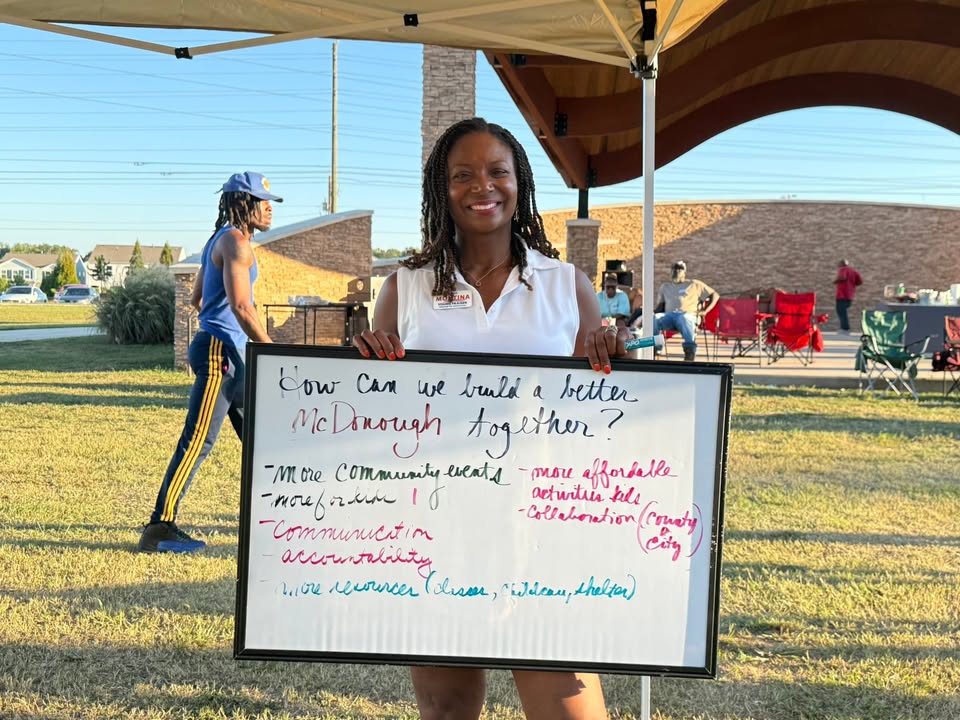 How can we build a better
McDonough together?
- More Community events
- more for kids 1
- Communication
- accountability
- more resources (classes, childcare, shelter)
- more affordable
activities kids
- Collaboration (County
&
City)
MARTINA
EXPO